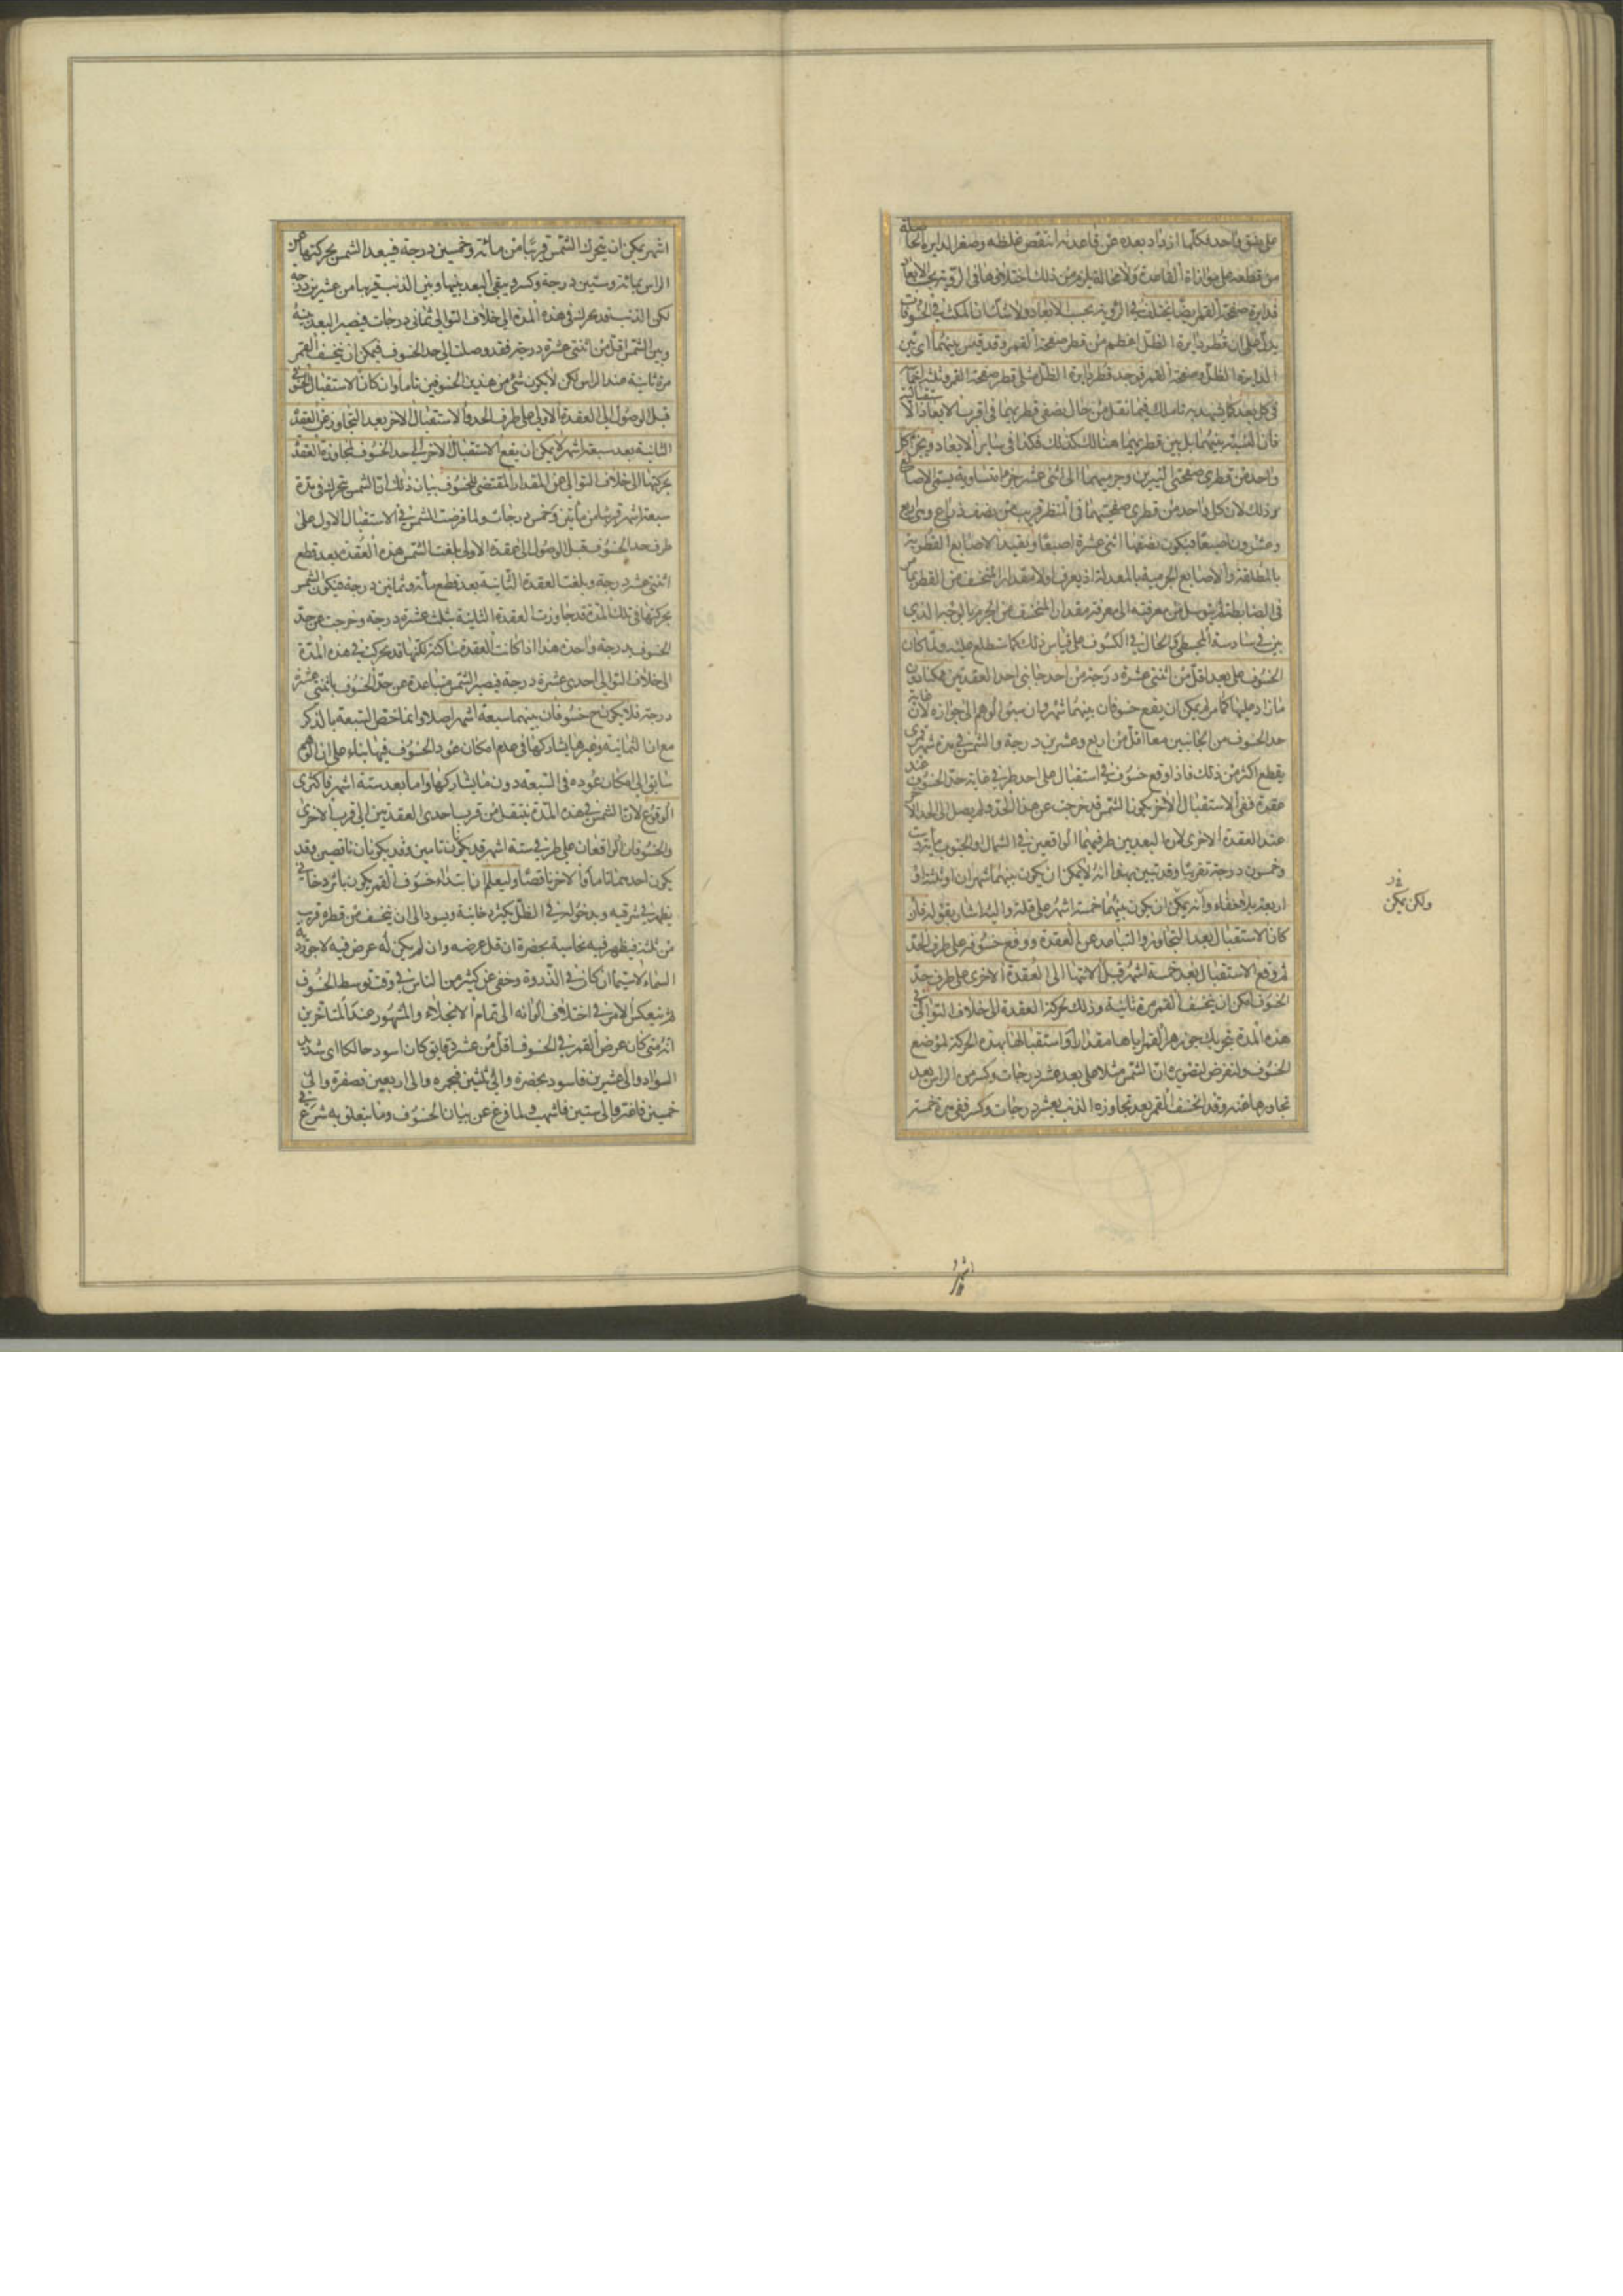 على نسق واحد فكلما ازداد بعده عن قاعدته انتقص غلظه وصغر الدايرة الحاصلة
من قطعه على موازاة القاعدة ولا محالة يلزم من ذلك اختلافها فى الروية بحسب الابعاد
فدايرة صفحة القمر ايضا يختلف فى الروية بحسب الابعاد ولا شك ان المكث فى الخسوفات
يدل على ان قطر دايرة الظل اعظم من قطر صفحة القمر وقد قيس بينهما اى بين
الدايرة الظل وصفحة القمر فوجد قطر دايرة الظل مثلى قطر صفحة القمر وثلثة اخماسه
فى كل بعد كما يشهد به تاملك فيما نقل من حال نصفى قطريهما فى اقرب الابعاد الاستقبالية
فان النسبة بينهما بل بين قطريهما هنالك كذلك فكذا فى ساير الابعاد ويجزى كل
واحد من قطرى صفحتى النيرين وجرميهما الى اثنى عشر جزءا متساوية يسمى الاصابع
وذلك لان كل واحد من قطرى صفحتيهما فى المنظر قريب من نصف ذراع وهى اربع
وعشرون اصبعا فيكون نصفها اثنى عشرة اصبعا ويقيد الاصابع القطرية
بالمطلقة والاصابع الجرمية بالمعدلة اذ يعرف اولا مقدار المنخسف من القطر بما
فى الضابطة ثم يتوسل من معرفته الى معرفة مقدار المنخسف من الجرم بالوجه الذى
بين فى سادسة المجسطى والحال فى الكسوف على قياس ذلك كما ستطلع عليه ولما كان
الخسوف على بعد اقل من اثنتى عشرة درجة من احد جانبى احد العقدتين هكذا دون
ما زاد عليها كما مر لم يمكن ان يقع خسوفان بينهما شهر وان سبق الوهم الى جوازه لان غاية
حد الخسوف من الجانبين معا اقل من اربع وعشرين درجة والشمس فى مدة شهر قمرى
يقطع اكثر من ذلك فاذا وقع خسوف فى استقبال على احد طرفى غاية حد الخسوف عند
عقدة ففى الاستقبال الاخر يكون الشمس قد خرجت عن هذا الحد ولم يصل الى الحد الاخر
عند العقدة الاخرى لان البعد بين طرفيهما الواقعين فى الشمال او الجنوب مائة
وخمسون درجة تقريبا وقد تبين بهذا انه لا يمكن ان يكون بينهما شهران او ثلثة او
اربعة بلا خفاء وانه يمكن ان يكون بينهما خمسة اشهر على قلة واليه اشار بقوله فان
كان الاستقبال بعد التجاوز والتباعد عن العقدة ووقع خسوفه على طرف الحد
ثم وقع الاستقبال بعد خمسة اشهر قبل الانتهاء الى العقدة الاخرى على طرف حد
الخسوف امكن ان يخسف القمر مرة ثانية وذلك لحركة العقدة الى خلاف التوالى فى
هذه المدة بتحريك جوزهر القمر اياها مقدارا واستقبالها بهذه الحركة لموضع
الخسوف ولنفرض لتصويره ان الشمس مثلا على بعد عشر درجات وكسر من الراس بعد
تجاوزها عنه وقد انخسف القمر بعد تجاوزه الذنب بعشر درجات وكسر ففى مدة خمسة
ولكن يمكن
اشهر
اشهر يمكن ان يتحرك الشمس قريبا من مائة وخمسين درجة فيبعد الشمس بحركتها عن
الراس بمائة وستين درجة وكسر ويبقى البعد بينها وبين الذنب قريبا من عشرين درجة
لكن الذنب قد يحرك فى هذه المدة الى خلاف التوالى ثمانى درجات فيصير البعد بينه
وبين الشمس اقل من اثنتى عشرة درجة فقد وصلت الى حد الخسوف فيمكن ان ينخسف القمر
مرة ثانية عند الراس لكن لا يكون شئ من هذين الخسوفين تاما وان كان الاستقبال الخسوفى
قبل الوصول الى العقدة الاولى على طرف الحد والاستقبال الاخر بعد التجاوز عن العقدة
الثانية بعد سبعة اشهر لا يمكن ان يقع الاستقبال الاخر فى حد الخسوف لمجاوزة العقدة
بحركتها الى خلاف التوالى عن المقدار المقتضى للخسوف بيان ذلك ان الشمس تتحرك فى مدة
سبعة اشهر قريبا من مأتين وخمس درجات ولما فرضت الشمس فى الاستقبال الاول على
طرف حد الخسوف قبل الوصول الى العقدة الاولى بلغت الشمس هذه العقدة بعد قطع
اثنتى عشر درجة وبلغت العقدة الثانية بعد قطع مأئة وثمانين درجة فيكون الشمس
بحركتها فى تلك المدة قد جاوزت العقدة الثانية بثلث عشرة درجة وخرجت عن حد
الخسوف بدرجة واحدة هذا اذا كانت العقدة ساكنة لكنها قد تحركت فى هذه المدة
الى خلاف التوالى احدى عشرة درجة فيصير الشمس متباعدة عن حد الخسوف باثنتى عشرة
درجة فلا يكون ح خسوفان بينهما سبعة اشهر اصلا وانما اختص السبعة بالذكر
مع ان الثمانية وغيرها يشاركها فى عدم امكان عود الخسوف فيها بناء على ان الوهم
سابق الى امكان عوده فى السبعة دون ما يشاركها واما بعد ستة اشهر فاكثرى
الوقوع لان الشمس فى هذه المدة ينتقل من قرب احدى العقدتين الى قرب الاخرى
والخسوفان الواقعان على طرفى ستة اشهر قد يكونان تامين وقد يكونان ناقصين وقد
يكون احدهما تاما والاخر ناقصا وليعلم ان ابتداء خسوف القمر يكون باثر دخانى
يظهر فى شرقيه وبدخوله فى الظل يكثر دخانية ويسود الى ان ينخسف من قطره قريب
من ثلثه فيظهر فيه نحاسية بخضرة ان قل عرضه وان لم يكن له عرض فيه لاجوردية
السماء لا سيما ان كان فى الذروة وخفى عن كثير من الناس فى وقت توسط الخسوف
ثم ينعكس الامر فى اختلاف الوانه الى تمام الانجلاء والمشهور عند المتاخرين
انه متى كان عرض القمر فى الخسوف اقل من عشر دقايق كان اسود حالكا اى شديد
السواد والى عشرين فاسود بخضرة والى ثلثين فبحمرة والى اربعين فبصفرة والى
خمسين فاغبر والى ستين فاشهب ولما فرغ عن بيان الخسوف وما يتعلق به شرع فى